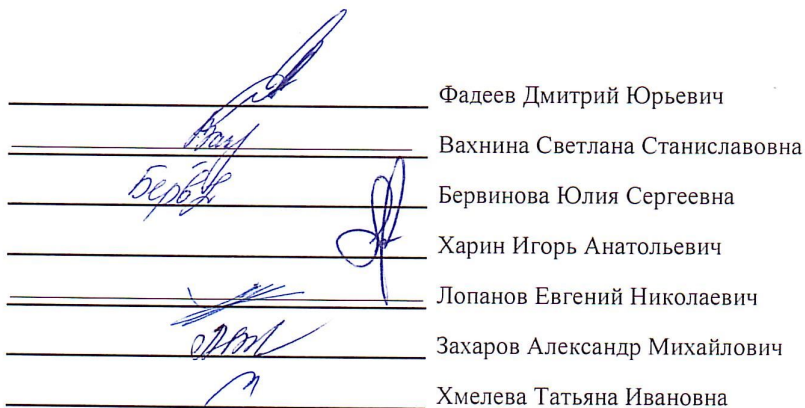 Фадеев Дмитрий Юрьевич
Вахнина Светлана Станиславовна
Бервинова Юлия Сергеевна
Харин Игорь Анатольевич
Лопанов Евгений Николаевич
Захаров Александр Михайлович
Хмелева Татьяна Ивановна